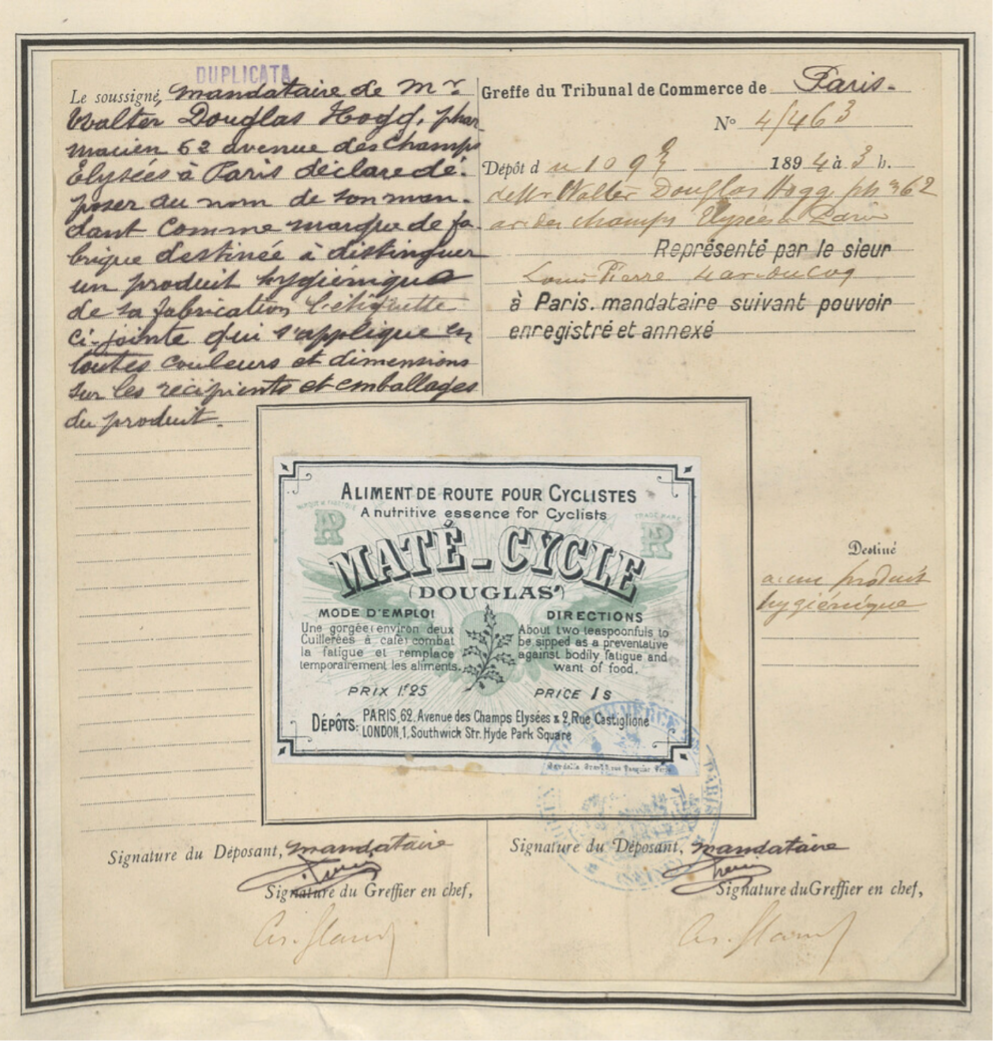 DUPLICATA
Le soussigné, mandataire de Mr
Walter Douglas Hogg, phar-
macien 62 avenue des Champs
Elysées à Paris déclare dé-
poser au nom de son man-
dant comme marque de fa-
brique destinée à distinguer
un produit hygiénique
de sa fabrication l'étiquette
ci-jointe qui s'applique en
toutes couleurs et dimensions
sur les récipients et emballages
du produit.
Greffe du Tribunal de Commerce de Paris.
N° 4/463
Dépôt du 10 9 1894 à 3 h.
de Mr Walter Douglas Hogg ph 62
av des Champs Elysées à Paris
Représenté par le sieur
Louis Pierre
à Paris. mandataire suivant pouvoir
enregistré et annexé
ALIMENT DE ROUTE POUR CYCLISTES
A nutritive essence for Cyclists
TRADE MARK
MATÉ-CYCLE
(DOUGLAS')
MODE D'EMPLOI
Une gorgée (environ deux
Cuillerées à café) combat
la fatigue et remplace
temporairement les aliments.
PRIX 1f.25
DIRECTIONS
About two teaspoonfuls to
be sipped as a preventative
against bodily fatigue and
want of food.
PRICE 1s
DÉPÔTS: PARIS, 62, Avenue des Champs Elysées & 2, Rue Castiglione
LONDON, 1, Southwick Str. Hyde Park Square
Destiné
à un produit
hygiénique
Signature du Déposant, mandataire
Signature du Greffier en chef,
Signature du Déposant, mandataire
Signature du Greffier en chef,